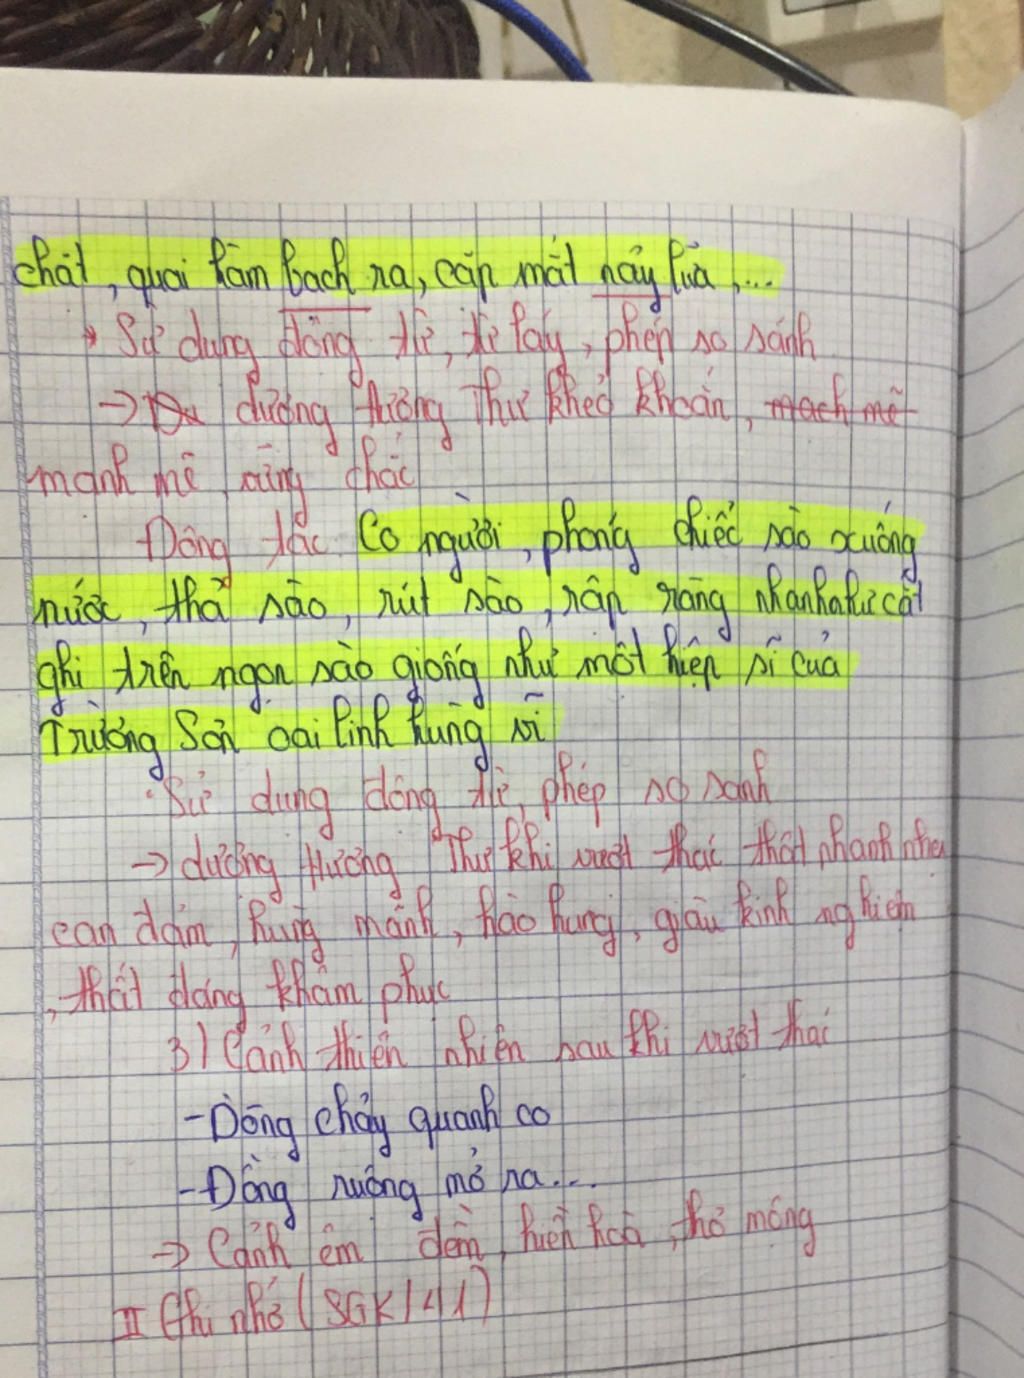 chặt, quai hàm bạch ra, cặp mắt nảy lửa,...
Sử dụng động từ, từ láy, phép so sánh
→ dượng Hương Thư khỏe khoắn, mạch mẽ
mạnh mẽ, vững chắc
Động tác Co người, phóng chiếc sào xuống
nước, thả sào, rút sào, rập ràng nhanh như cắt
ghì trên ngọn sào giống như một hiệp sĩ của
Trường Sơn oai linh hùng vĩ
Sử dụng động từ, phép so sánh
→ dượng Hương Thư khi vượt thác thật nhanh nhẹn
can đảm, hùng mạnh, hào hùng, giàu kinh nghiệm
, thật đáng khâm phục
3) Cảnh thiên nhiên sau khi vượt thác
- Dòng chảy quanh co
- Đồng ruộng mở ra...
→ Cảnh êm đềm, hiền hoà, thơ mộng
II Ghi nhớ (SGK/41)